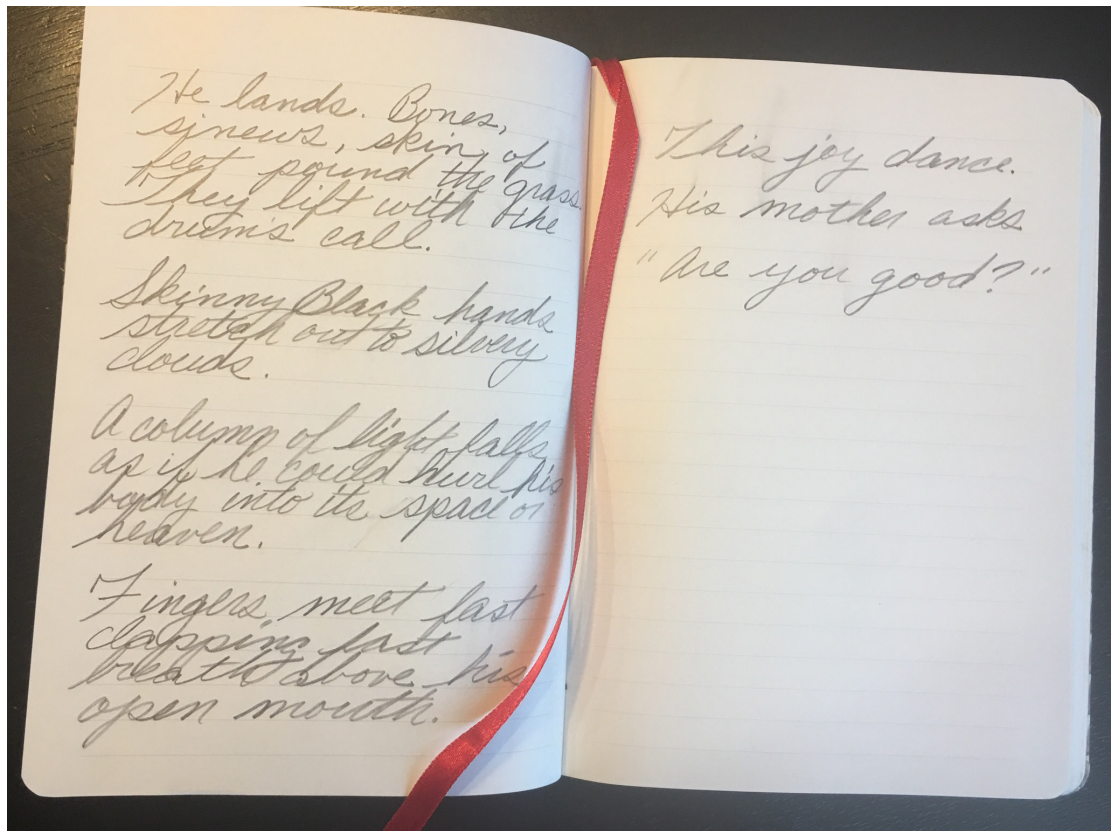 He lands. Bones,
sinews, skin, of
feet pound the grass.
They lift with the
drum's call.
Skinny Black hands
stretch out to silvery
clouds.
A column of light falls
as if he could hurl his
body into its space or
heaven.
Fingers meet fast
clapping fast
breath above his
open mouth.
This joy dance.
His mother asks
"Are you good?"